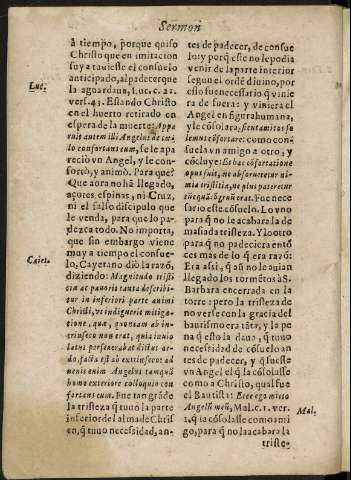 Sermon
à tiempo, porque quiso
Christo que en imitacion
suya tuuiesse el consuelo
anticipado, al padecer que
Luc.
la aguardaua, Luc. c. 22.
vers. 43. Estando Christo
en el huerto retirado en
espera de la muerte: Appa
ruit autem illi Angelus de cæ
lo confortans eum, se le apa
reciò vn Angel, y le con-
fortò, y animò. Para que?
Que aora no hà llegado,
açotes espinas, ni Cruz,
ni el falso discipulo que
le venda, para que lo pa-
dezca todo. No importa,
que sin embargo viene
muy a tiempo el consue-
Caiet.
lo, Cayetano diò la razõ,
diziendo: Magnitudo tristi
tiæ ac pauoris tanta describi-
tur in inferiori parte animi
Christi, vt indiguerit mitiga-
tione, quæ, quoniam ab in-
trinseco non erat, quia inuio
latus perseuerabat dictus or-
do, facta est ab extrinseco: ad
uenis enim Angelus tamquã
homo exteriore colloquio con
fortans eum. Fue tan grãde
la tristeza q̃ tuuo la parte
inferior del alma de Chris
to, q̃ tuuo necessidad, an-
tes de padecer, de consue
lo: y porq̃ este no le podia
venir de la parte interior
segun el ordẽ diuino, por
esso fue necessario q̃ vinie
ra de fuera: y viniera el
Angel en figura humana,
y le cõsolara, sicut amicus so
lemus cõfortare: como con-
suela vn amigo a otro, y
cõcluye: Et hac cõfortatione
opus fuit, ne absorberetur ni-
mia tristitia, ne plus pateretur
quàm opportunũ erat. Fue nece
sario este cõsuelo. Lo vno
para q̃ no le acabara la de
masiada tristeza. Y lo otro
para q̃ no padeciera entõ
ces mas de lo q̃ era razõ:
Era assi, q̃ aũ no le auian
llegado los tormẽtos à S.
Barbara encerrada en la
torre: pero la tristeza de
no verse con la gracia del
bautismo era tãta, y la pe
na q̃ esto la daua, q̃ tuuo
necessidad de cõsuelo an-
tes de padecer, y q̃ fuesse
vn Angel el q̃ la cõsolasse
como a Christo, qual fue
el Bautista: Ecce ego mitto
Angelũ meũ, Mal. c. 1. ver.
Mal.
1. q̃ la cõsolasse como ami
go, para q̃ no la acabara la
triste-